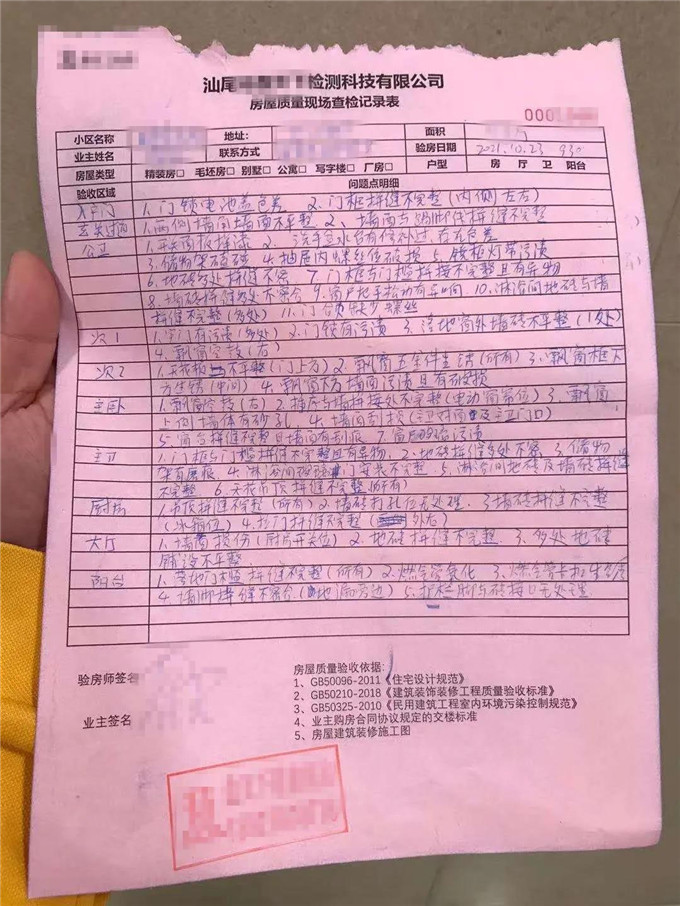 汕尾 检测科技有限公司
房屋质量现场查检记录表
000
小区名称 地址: 面积
业主姓名 联系方式 验房日期 2021.10.23 930
房屋类型 精装房□ 毛坯房□ 别墅□ 公寓□ 写字楼□ 厂房□ 户型 房 厅 卫 阳台
验收区域 问题点明细
入户门 1.门锁电池盖色差 2.门框拼缝不完整(内侧左右)
玄关过道 1.两侧墙面墙面不平整 2.墙面与 拼缝不完整
公卫 1.开关面板掉漆 2.洗手盆水台有修补过,右左色差
3.储物架破碎 4.抽屉内螺丝位破损 5.镜柜灯带污渍
6.地砖多处拼缝不密 7.门框与门槛拼接不完整且有异物
8.墙砖拼缝多处不密合 9.窗户把手拉动有异响 10.淋浴间地砖与墙
拼缝不完整(多处) 11.门合页缺少螺丝
次1 1.房门有污渍(多处) 2.门锁有污渍 3.落地窗外墙砖不平整(1处)
4.飘窗空鼓(右)
次2 1.天花板 不平整(门上方) 2.飘窗五金件生锈(所有) 3.飘窗框下
方生锈(中间) 4.飘窗下方墙面污渍且有破损
主卧 1.飘窗空鼓(右) 2.插座与墙拼接处不完整(电动窗帘位) 3.飘窗
上侧墙体有砂孔 4.墙面刮损(主卫对面及主卫门口)
5.窗台拼缝不完整且墙面有刮痕 7.窗户玻璃污渍
主卫 1.门框与门槛拼缝不完整且有异物. 2.地砖拼缝多处不密 3.储物
架有磨痕. 4.淋浴间玻璃门安装不完整. 5.淋浴间地砖及墙砖拼缝
不完整 6.天花吊顶拼缝不完整(所有)
厨房 1.吊顶拼缝不完整(所有) 2.墙砖打孔位无处理. 3.墙砖拼缝不完整
(冰箱位) 4.移门拼缝不完整( 外右)
大厅 1.墙面损伤(厨房开关位) 2.地砖拼缝不完整. 3.多处地砖
铺设不平整
阳台 1.落地门槛拼缝不完整(所有) 2.燃气管氧化 3.燃气管卡扣生锈
4.墙脚拼缝不密合(地漏旁边) 5.护栏脚与砖接口无处理
验房师签名
业主签名
房屋质量验收依据:
1、GB50096-2011《住宅设计规范》
2、GB50210-2018《建筑装饰装修工程质量验收标准》
3、GB50325-2010《民用建筑工程室内环境污染控制规范》
4、业主购房合同协议规定的交楼标准
5、房屋建筑装修施工图